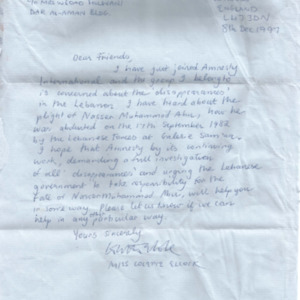 DAR AL-AMANI BLDG.
ENGLAND
LU7 3DN
8th Dec 1997
Dear Friends,
I have just joined Amnesty
International and the group I belong to
is concerned about the 'disappearances'
in the Lebanon. I have heard about the
plight of Nasser Muhammad how he
was abducted on the 17th September 1982
by the Lebanese Forces at Galerie Semaan.
I hope that Amnesty by its continuing
work, demanding a full investigation
of all 'disappearances' and urging the Lebanese
government to take responsibility for the
fate of Nasser Muhammad will help you
in some way. Please let us know if we can
help in any other particular way.
Yours Sincerely
MISS